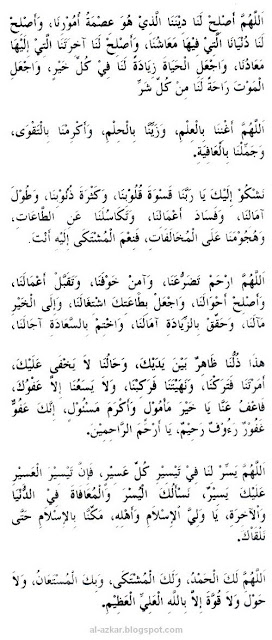 اَللّٰهُمَّ أَصْلِحْ لَنَا دِيْنَنَا الَّذِيْ هُوَ عِصْمَةُ أُمُوْرِنَا، وَأَصْلِحْ
لَنَا دُنْيَانَا الَّتِيْ فِيْهَا مَعَاشُنَا، وَأَصْلِحْ لَنَا آخِرَتَنَا الَّتِيْ إِلَيْهَا
مَعَادُنَا، وَاجْعَلِ الْحَيَاةَ زِيَادَةً لَنَا فِيْ كُلِّ خَيْرٍ، وَاجْعَلِ
الْمَوْتَ رَاحَةً لَنَا مِنْ كُلِّ شَرٍّ
اَللّٰهُمَّ أَغْنِنَا بِالْعِلْمِ، وَزَيِّنَّا بِالْحِلْمِ، وَأَكْرِمْنَا بِالتَّقْوَى،
وَجَمِّلْنَا بِالْعَافِيَةِ.
نَشْكُوْ إِلَيْكَ يَا رَبَّنَا قَسْوَةَ قُلُوْبِنَا، وَكَثْرَةَ ذُنُوْبِنَا، وَطُوْلَ
آمَالِنَا، وَفَسَادَ أَعْمَالِنَا، وَتَكَاسُلَنَا عَنِ الطَّاعَاتِ،
وَهُجُوْمَنَا عَلَى الْمُخَالَفَاتِ، فَنِعْمَ الْمُشْتَكَى إِلَيْهِ أَنْتَ.
اَللّٰهُمَّ ارْحَمْ تَضَرُّعَنَا، وَآمِنْ خَوْفَنَا، وَتَقَبَّلْ أَعْمَالَنَا،
وَأَصْلِحْ أَحْوَالَنَا، وَاجْعَلْ بِطَاعَتِكَ اشْتِغَالَنَا، وَإِلَى الْخَيْرِ
مَآلَنَا، وَحَقِّقْ بِالزِّيَادَةِ آمَالَنَا، وَاخْتِمْ بِالسَّعَادَةِ آجَالَنَا،
هٰذَا ذُلُّنَا ظَاهِرٌ بَيْنَ يَدَيْكَ، وَحَالُنَا لاَ يَخْفَى عَلَيْكَ،
أَمَرْتَنَا فَتَرَكْنَا، وَنَهَيْتَنَا فَرَكِبْنَا، وَلاَ يَسَعُنَا إِلاَّ عَفْوُكَ،
فَاعْفُ عَنَّا يَا خَيْرَ مَأْمُوْلٍ وَأَكْرَمَ مَسْئُوْلٍ، إِنَّكَ عَفُوٌّ
غَفُوْرٌ رَءُوْفٌ رَحِيْمٌ، يَا أَرْحَمَ الرَّاحِمِيْنَ.
اَللّٰهُمَّ يَسِّرْ لَنَا فِيْ تَيْسِيْرِ كُلِّ عَسِيْرٍ، فَإِنَّ تَيْسِيْرَ الْعَسِيْرِ
عَلَيْكَ يَسِيْرٌ، نَسْأَلُكَ الْيُسْرَ وَالْمُعَافَاةَ فِيْ الدُّنْيَا
وَالْآخِرَةِ، يَا وَلِيَّ الْإِسْلاَمِ وَأَهْلِهِ، مَكِّنَّا بِالْإِسْلاَمِ حَتَّى
نَلْقَاكَ.
اَللّٰهُمَّ لَكَ الْحَمْدُ، وَلَكَ الْمُشْتَكَى، وَبِكَ الْمُسْتَعَانُ، وَلاَ
حَوْلَ وَلاَ قُوَّةَ إِلاَّ بِاللهِ الْعَلِيِّ الْعَظِيْمِ.
al-azkar.blogspot.com